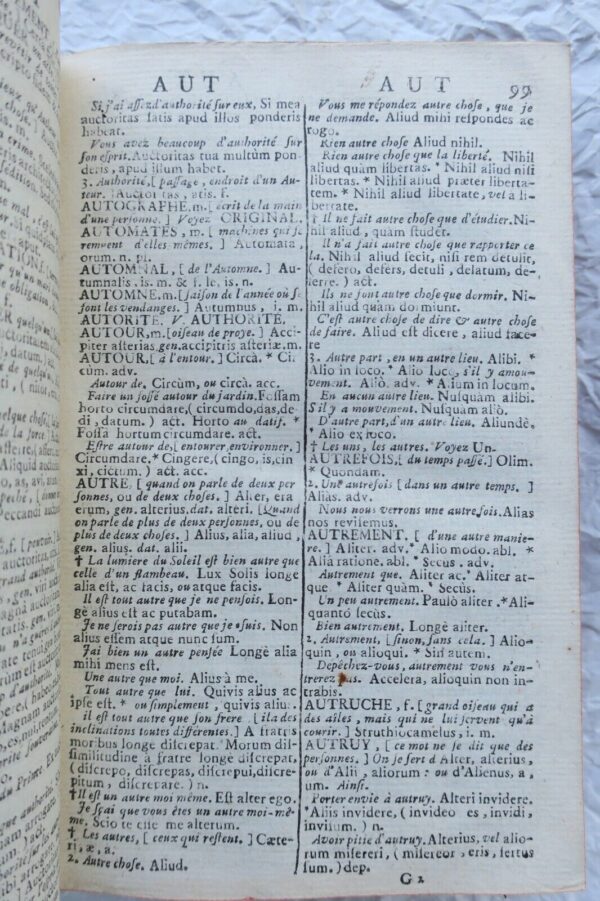 AUT
AUT
99
Si j'ai assez d'authorité sur eux, Si mea
auctoritas satis apud illos ponderis
habeat.
Vous avez beaucoup d'authorité sur
son esprit. Auctoritas tua multùm pon-
deris, apud illum habet.
3. Authorité, [ passage, endroit d'un Au-
teur. ] Auctoritas, atis. f.
AUTOGRAPHE, m. [ écrit de la main
d'une personne. ] Voyez ORIGINAL.
AUTOMATES, m. [ machines qui se
remuent d'elles mêmes. ] Automata,
orum. n. pl.
AUTOMNAL, [ de l'Automne. ] Au-
tumnalis, is. m. & f. le, is. n.
AUTOMNE. m. [ saison de l'année où se
font les vendanges. ] Autumnus, i. m.
AUTORITÉ. V. AUTHORITÉ.
AUTOUR, m. [ oiseau de proye. ] Acci-
piter asterias. gen. accipitris asteriæ. m.
AUTOUR. [ à l'entour. ] Circà. * Cir
cùm. adv.
Autour de. Circùm, ou circà. acc.
Faire un fossé autour du jardin. Fossam
horto circumdare, ( circumdo, das, de-
di, datum. ) act. Horto au datif. *
Fossâ hortum circumdare. act.
Estre autour de, [ entourer, environner. ]
Circumdare. * Cingere, ( cingo, is, cin
xi, cictum. ) act. acc.
AUTRE, [ quand on parle de deux per
sonnes, ou de deux choses. ] Alter, era
erum, gen. alterius. dat. alteri. [ Quand
on parle de plus de deux personnes, ou de
plus de deux choses. ] Alius, alia, aliud,
gen. alius. dat. alii.
† La lumiere du Soleil est bien autre que
celle d'un flambeau. Lux Solis longè
alia est, ac facis, ou atque facis.
Il est tout autre que je ne pensois. Lon-
gè alius est ac putabam.
Je ne serois pas autre que je suis. Non
alius essem atque nunc sum.
J'ai bien un autre pensée Longè alia
mihi mens est.
Une autre que moi. Alius à me.
Tout autre que lui. Quivis alius ac
ipse est. * ou simplement, quivis alius.
il est tout autre que son frere [ il a des
inclinations toutes differentes. ] A fratris
moribus longè discrepat. * Morum dis-
similitudine à fratre longè discrepat,
( discrepo, discrepas, discrepui, discre-
pitum, discrepare. ) n.
† Il est un autre moi même. Est alter ego.
Je sçai que vous êtes un autre moi-mê-
me. Scio te esse me alterum.
† Les autres, [ ceux qui restent. ] Cæte-
ri, æ, a.
2. Autre chose. Aliud.
Vous me répondez autre chose, que je
ne demande. Aliud mihi respondes ac
rogo.
Rien autre chose Aliud nihil.
Rien autre chose que la liberté. Nihil
aliud quàm libertas. * Nihil aliud nisi
libertas. * Nihil aliud præter liberta-
tem. * Nihil aliud libertate, vel à li-
bertate.
† Il ne fait autre chose que d'étudier. Ni-
hil aliud, quàm studet.
Il n'a fait autre chose que rapporter ce
la. Nihil aliud fecit, nisi rem detulit,
( defero, defers, detuli, delatum, de-
ferre. ) act.
Ils ne font autre chose que dormir. Ni-
hil aliud quàm dormiunt.
C'est autre chose de dire & autre chose
de faire. Aliud est dicere, aliud face-
re
3. Autre part, en un autre lieu. Alibi. *
Alio in loco. * Alio loco, s'il y a mou-
vement. Aliò. adv. * Alium in locum.
En aucun autre lieu. Nusquàm alibi.
S'il y a mouvement. Nusquàm aliò.
D'autre part, d'un autre lieu. Aliundè.
* Alio ex loco.
† Les uns, les autres. Voyez Un.
AUTREFOIS, [ du temps passé. ] Olim.
* Quondam.
2. Une autrefois [ dans un autre temps. ]
Aliàs. adv.
Nous nous verrons une autrefois. Alias
nos revisemus.
AUTREMENT. [ d'une autre manie-
re. ] Aliter. adv. * Alio modo. abl. *
Aliâ ratione. abl. * Secus. adv.
Autrement que. Aliter ac. * Aliter at-
que * Aliter quàm. * Secùs.
Un peu autrement. Paulò aliter. * Ali-
quantò secùs.
Bien autrement. Longè aliter.
2. Autrement, [ sinon, sans cela. ] Alio-
quin, ou alioqui. * Sin autem.
Depéchez-vous, autrement vous n'en-
trerez pas. Accelera, alioquin non in-
trabis.
AUTRUCHE, f. [ grand oiseau qui a
des ailes, mais qui ne lui servent qu'à
courir. ] Struthiocamelus, i. m.
AUTRUY, [ ce mot ne se dit que des
personnes. ] On se sert d'Alter, alterius,
ou d'Alii, aliorum : ou d'Alienus, a,
um. Ainsi.
Porter envie à autruy. Alteri invidere.
* Aliis invidere, ( invideo es, invidi,
invisum. ) n.
Avoir pitié d'autruy. Alterius, vel alio-
rum misereri, ( misereor, eris, sertus
sum. ) dep.
G 2